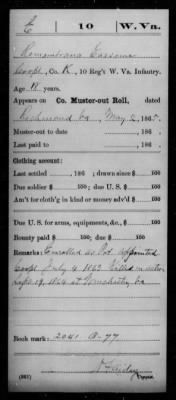 E | 10 | W. Va.
Corpl, Co. K, 10 Reg't W. Va. Infantry.
Age 18 years.
Appears on Co. Muster-out Roll, dated
Richmond Va, May 2, 1865.
Muster-out to date , 186 .
Last paid to , 186 .
Clothing account:
Last settled , 186 ; drawn since $ 100
Due soldier $ 100; due U. S. $ 100
Am't for cloth'g in kind or money adv'd $ 100
Due U. S. for arms, equipments, &c., $ 100
Bounty paid $ 100; due $ 100
Remarks: Enrolled as Pvt Appointed
Corpl July 4 1863 Killed in action
Sept 19, 1864 at Winchester Va
Book mark: 2041 A-77
(861)